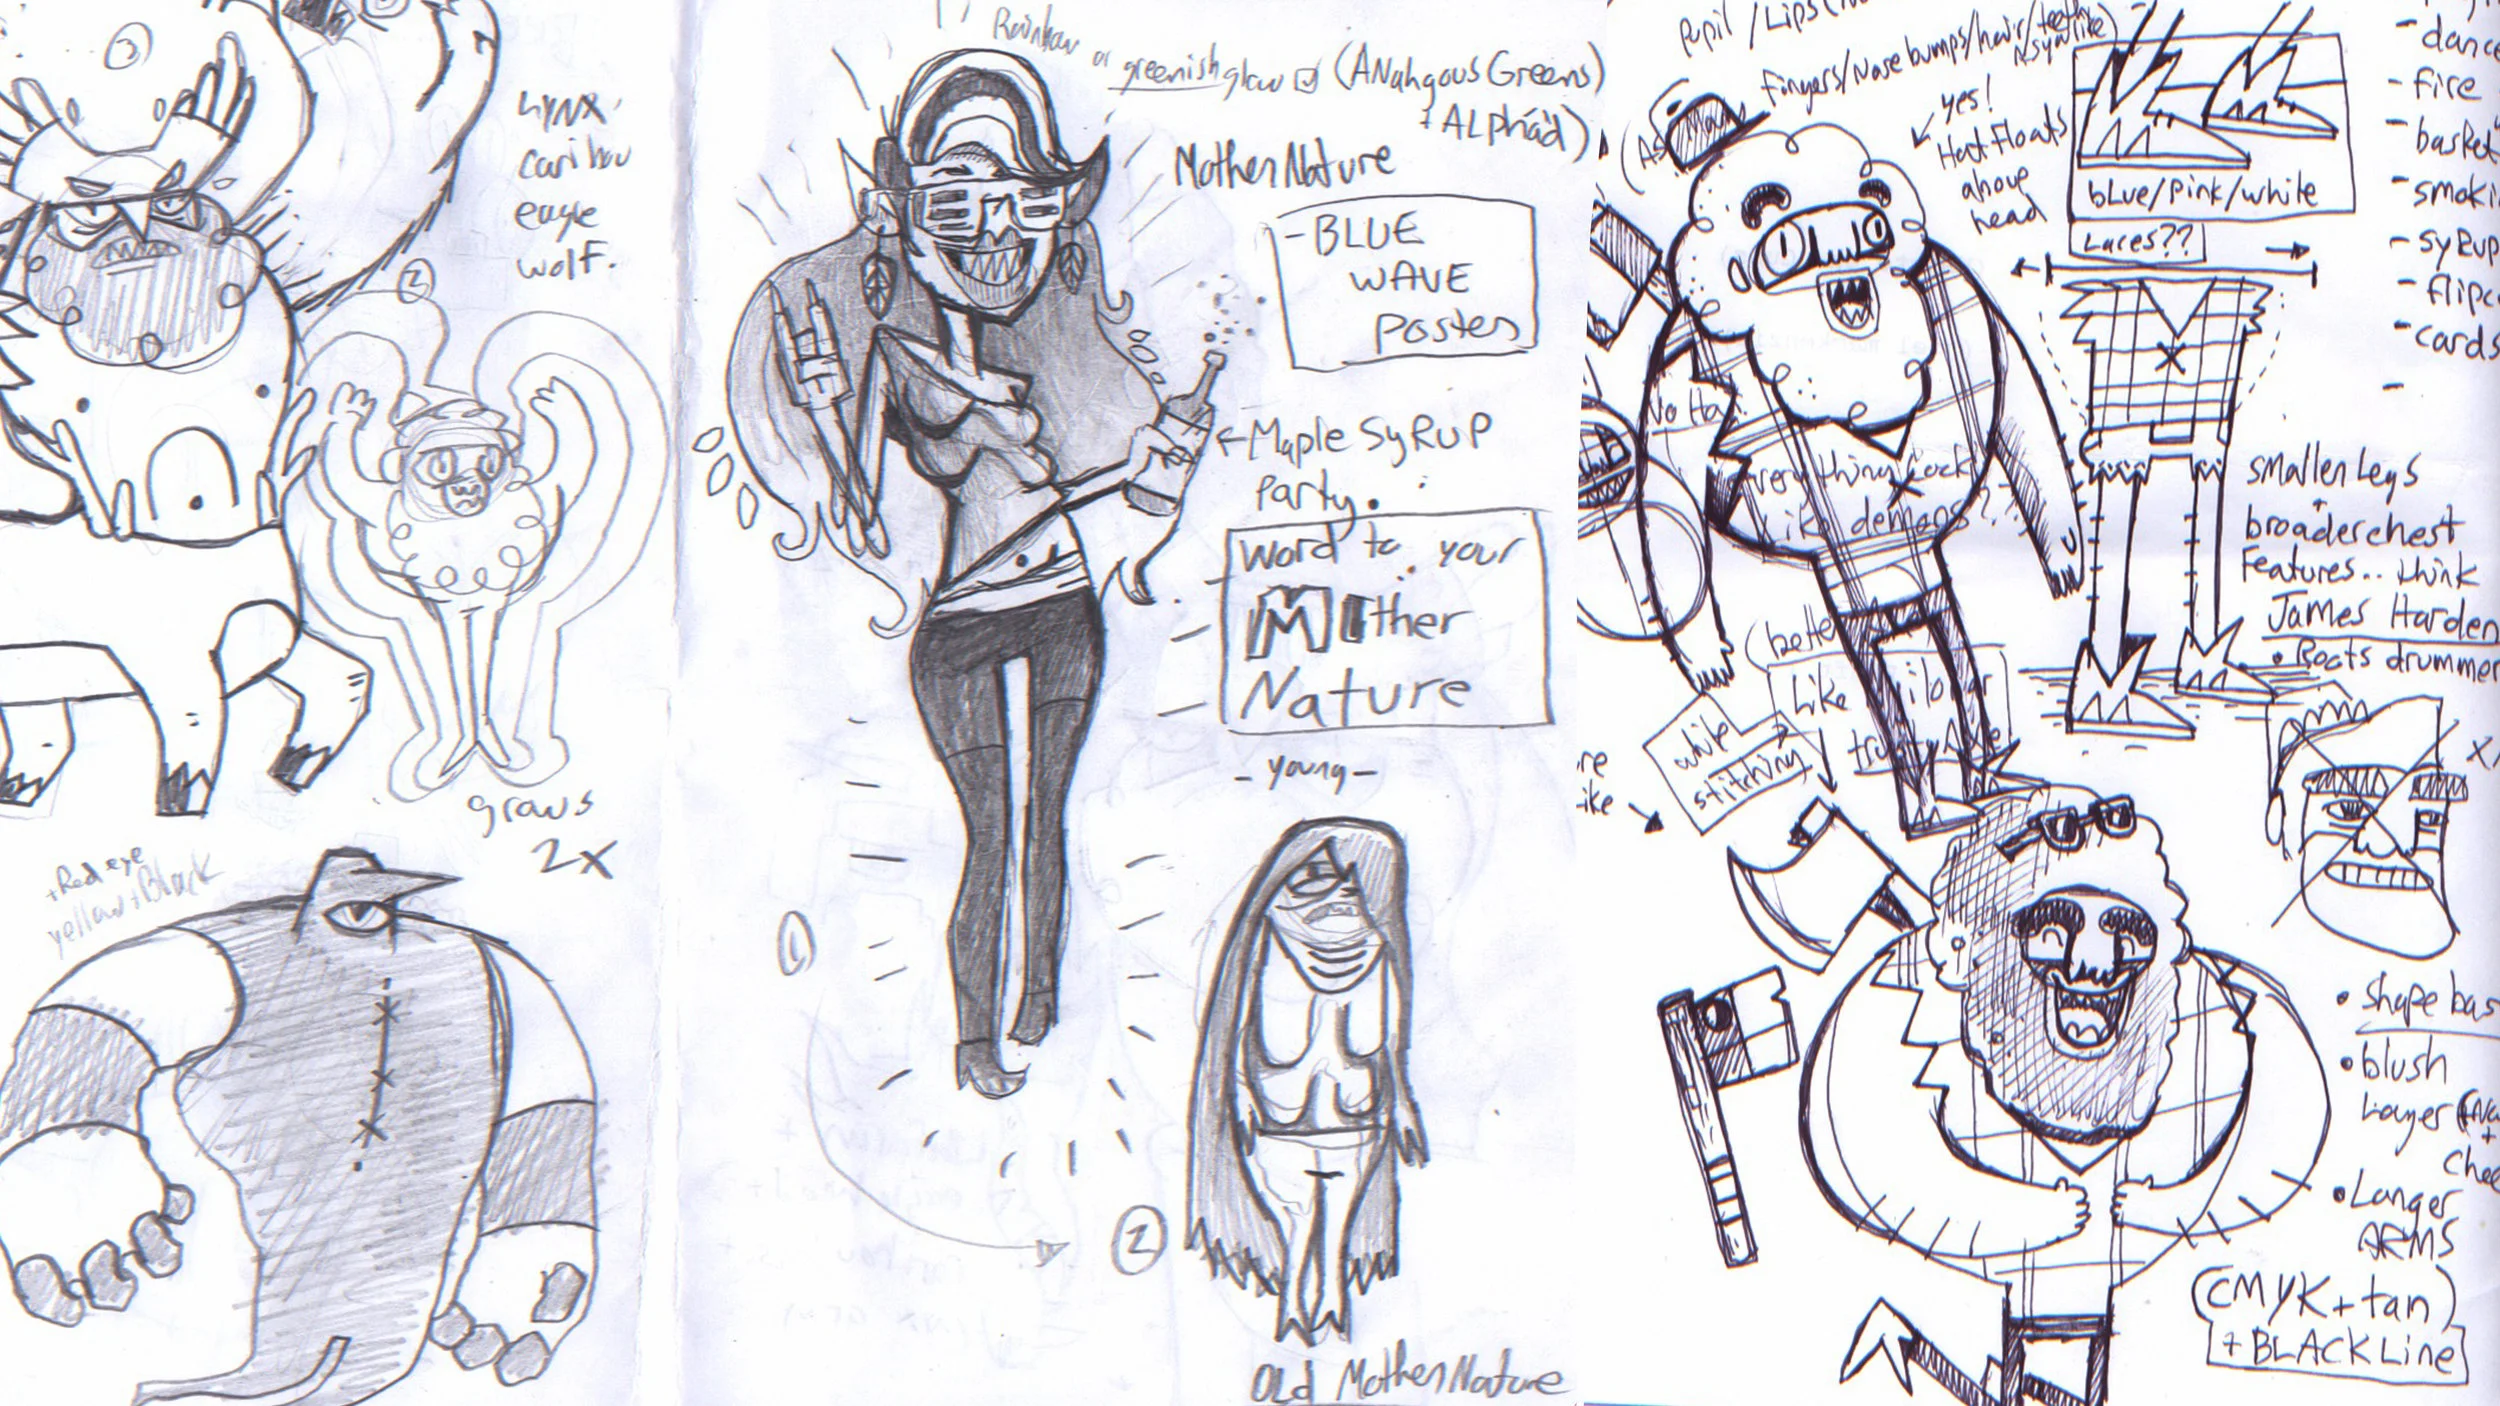 2
Lynx,
caribou
eagle
wolf.
2
grows
2x
+Red eye
yellow+Black
Rainbow or greenish glow (ANahgous Greens)
+ ALpha'd)
MotherNature
- BLUE
WAVE
Poster
← Maple SyRUP
Party.
Word to your
Mother
Nature
- young -
1
2
Old MotherNature
Pupil / Lips
Fingers/Nose bumps/hair/teeth
yes!
Hat Floats
above
head
bLue/pink/white
Laces??
No Ha
very thing
Like demons??
(bette
Like
white
stitching
re
ike
- dance
- fire
- basket
- smoki
- syrup
- flipc
- cards
-
smaller Legs
+
broader chest
Features.. think
James Harden
• Roots drummer
• Shape bas
• blush
Layer
+
chee
• Longer
ARMS
(CMYK + tan)
+ BLACK Line